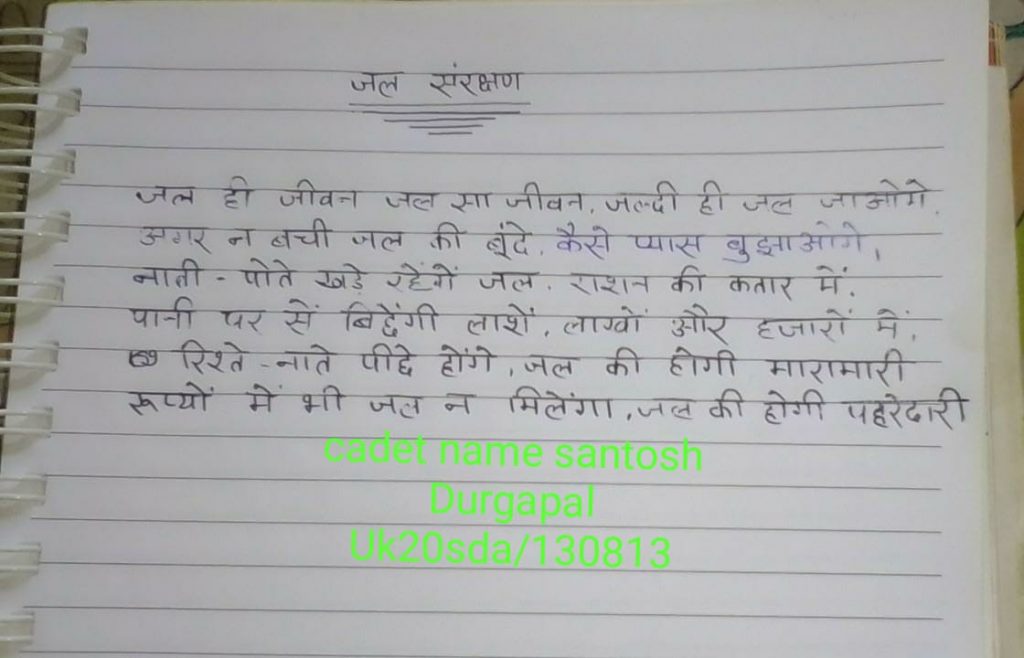 जल संरक्षण
जल ही जीवन जल सा जीवन, जल्दी ही जल जाओगे,
अगर न बची जल की बूंदे, कैसे प्यास बुझाओगे,
नाती - पोते खड़े रहेंगें जल, राशन की कतार में,
पानी पर सें बिछेंगी लाशें, लाखों और हजारों में,
रिश्ते - नाते पीछे होंगे, जल की होगी मारामारी
रूप्यों में भी जल न मिलेंगा, जल की होगी पहरेदारी
cadet name santosh
Durgapal
Uk20sda/130813